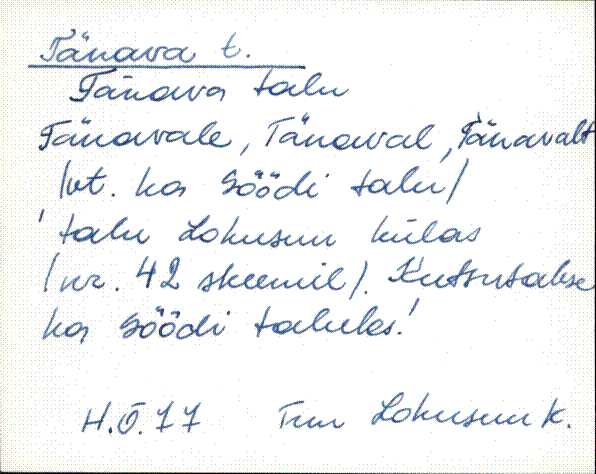 Tänava t.
Tänava talu
Tänavale, Tänaval, Tänavalt
/vt. ka Söödi talu/
'talu Lohusuu külas
/nr. 42 skeemil/. Kutsutakse
ka Söödi taluks.'
H.Õ. 77 Trm Lohusuu k.